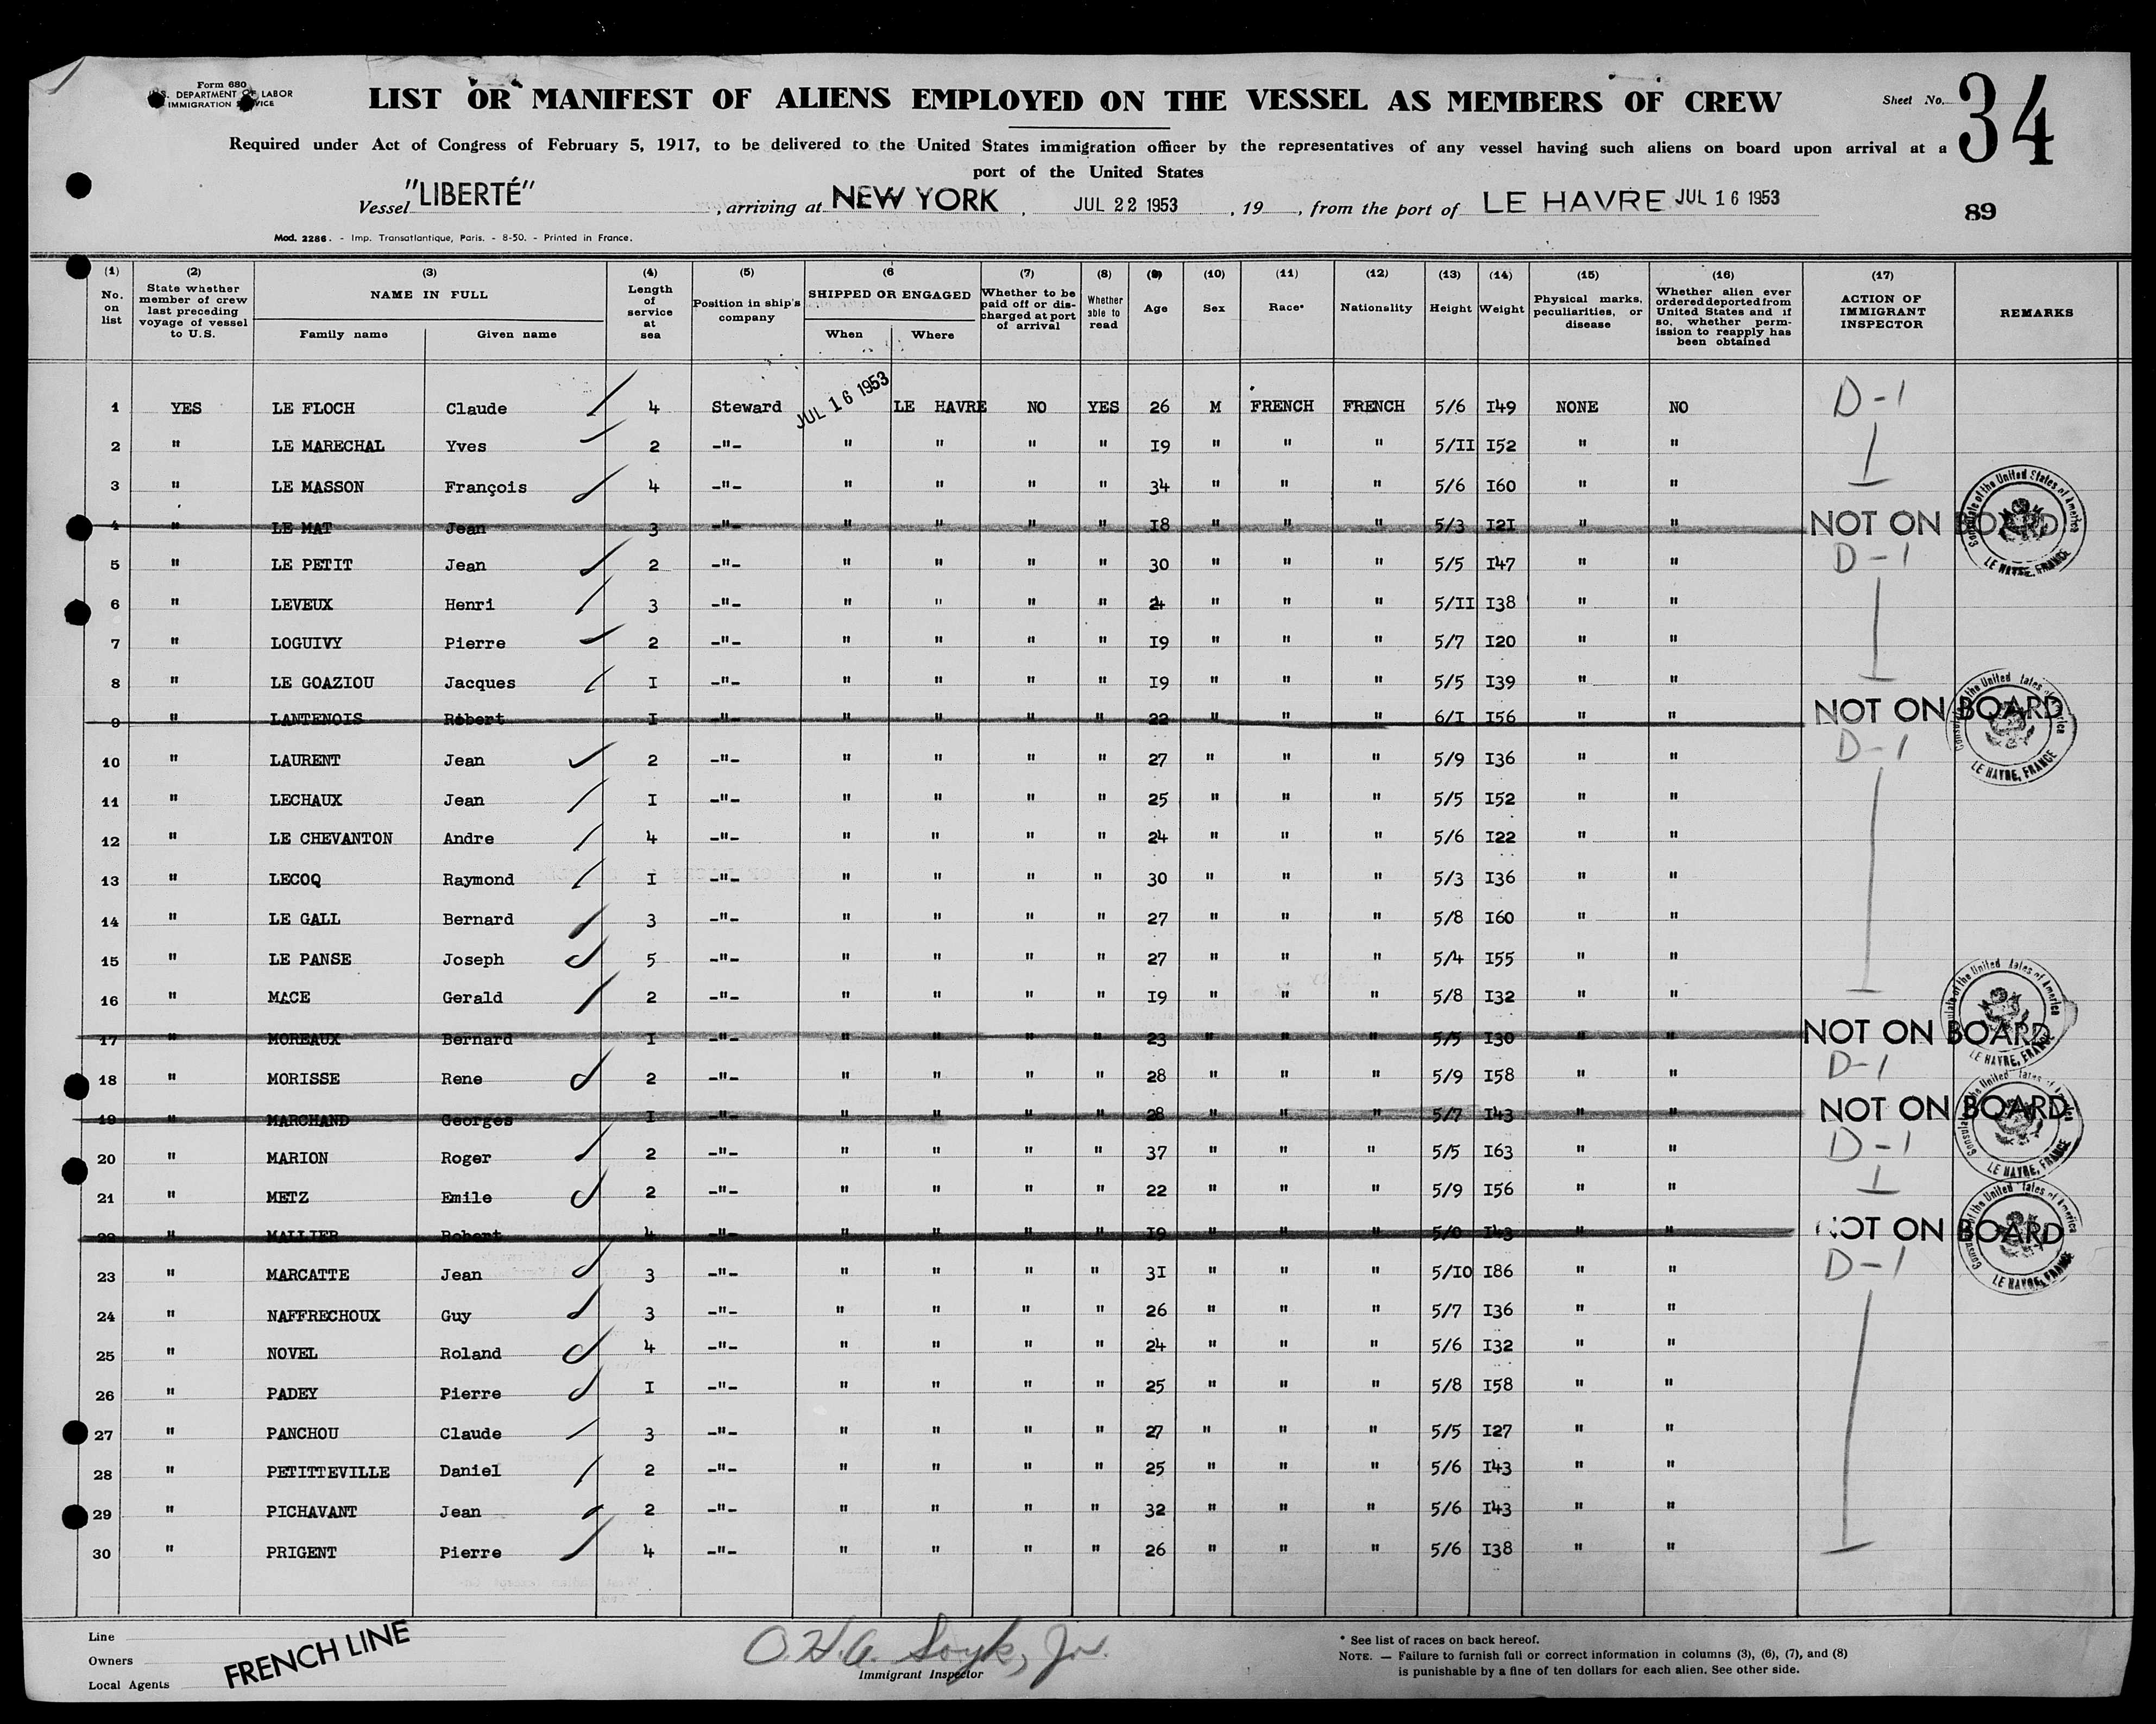 Form 680
U.S. DEPARTMENT OF LABOR
IMMIGRATION SERVICE
LIST OR MANIFEST OF ALIENS EMPLOYED ON THE VESSEL AS MEMBERS OF CREW
Sheet No. 34
Required under Act of Congress of February 5, 1917, to be delivered to the United States immigration officer by the representatives of any vessel having such aliens on board upon arrival at a
port of the United States
Vessel "LIBERTÉ", arriving at NEW YORK, JUL 22 1953, 19, from the port of LE HAVRE JUL 16 1953
89
Mod. 2286. - Imp. Transatlantique, Paris. - 8-50. - Printed in France.
(1) (2) (3) (4) (5) (6 (7) (8) (9) (10) (11) (12) (13) (14) (15) (16) (17)
No. on list
State whether member of crew last preceding voyage of vessel to U.S.
NAME IN FULL
Family name Given name
Length of service at sea
Position in ship's company
SHIPPED OR ENGAGED
When Where
Whether to be paid off or discharged at port of arrival
Whether able to read
Age
Sex
Race*
Nationality
Height
Weight
Physical marks, peculiarities, or disease
Whether alien ever ordered deported from United States and if so, whether permission to reapply has been obtained
ACTION OF IMMIGRANT INSPECTOR
REMARKS
1 YES LE FLOCH Claude 4 Steward JUL 16 1953 LE HAVRE NO YES 26 M FRENCH FRENCH 5/6 I49 NONE NO D-1
2 " LE MARECHAL Yves 2 -"- " " " " I9 " " " 5/II I52 " "
3 " LE MASSON François 4 -"- " " " " 34 " " " 5/6 I60 " "
4 " LE MAT Jean 3 -"- " " " " I8 " " " 5/3 I2I " " NOT ON BOARD
5 " LE PETIT Jean 2 -"- " " " " 30 " " " 5/5 I47 " " D-1
6 " LEVEUX Henri 3 -"- " " " " 24 " " " 5/II I38 " "
7 " LOGUIVY Pierre 2 -"- " " " " I9 " " " 5/7 I20 " "
8 " LE GOAZIOU Jacques I -"- " " " " I9 " " " 5/5 I39 " "
9 " LANTENOIS Robert I -"- " " " " 22 " " " 6/I I56 " " NOT ON BOARD
10 " LAURENT Jean 2 -"- " " " " 27 " " " 5/9 I36 " " D-1
11 " LECHAUX Jean I -"- " " " " 25 " " " 5/5 I52 " "
12 " LE CHEVANTON Andre 4 -"- " " " " 24 " " " 5/6 I22 " "
13 " LECOQ Raymond I -"- " " " " 30 " " " 5/3 I36 " "
14 " LE GALL Bernard 3 -"- " " " " 27 " " " 5/8 I60 " "
15 " LE PANSE Joseph 5 -"- " " " " 27 " " " 5/4 I55 " "
16 " MACE Gerald 2 -"- " " " " I9 " " " 5/8 I32 " "
17 " MOREAUX Bernard I -"- " " " " 23 " " " 5/5 I30 " " NOT ON BOARD
18 " MORISSE Rene 2 -"- " " " " 28 " " " 5/9 I58 " " D-1
19 " MARCHAND Georges I -"- " " " " 28 " " " 5/7 I43 " " NOT ON BOARD
20 " MARION Roger 2 -"- " " " " 37 " " " 5/5 I63 " " D-1
21 " METZ Emile 2 -"- " " " " 22 " " " 5/9 I56 " "
22 " MALLIER Robert 4 -"- " " " " I9 " " " I43 " " NOT ON BOARD
23 " MARCATTE Jean 3 -"- " " " " 3I " " " 5/IO I86 " " D-1
24 " NAFFRECHOUX Guy 3 -"- " " " " 26 " " " 5/7 I36 " "
25 " NOVEL Roland 4 -"- " " " " 24 " " " 5/6 I32 " "
26 " PADEY Pierre I -"- " " " " 25 " " " 5/8 I58 " "
27 " PANCHOU Claude 3 -"- " " " " 27 " " " 5/5 I27 " "
28 " PETITTEVILLE Daniel 2 -"- " " " " 25 " " " 5/6 I43 " "
29 " PICHAVANT Jean 2 -"- " " " " 32 " " " 5/6 I43 " "
30 " PRIGENT Pierre 4 -"- " " " " 26 " " " 5/6 I38 " "
Consulate of the United States of America
LE HAVRE, FRANCE
Line
Owners
Local Agents
FRENCH LINE
O.H.A. Soyk, Jr.
Immigrant Inspector
* See list of races on back hereof.
NOTE. — Failure to furnish full or correct information in columns (3), (6), (7), and (8)
is punishable by a fine of ten dollars for each alien. See other side.